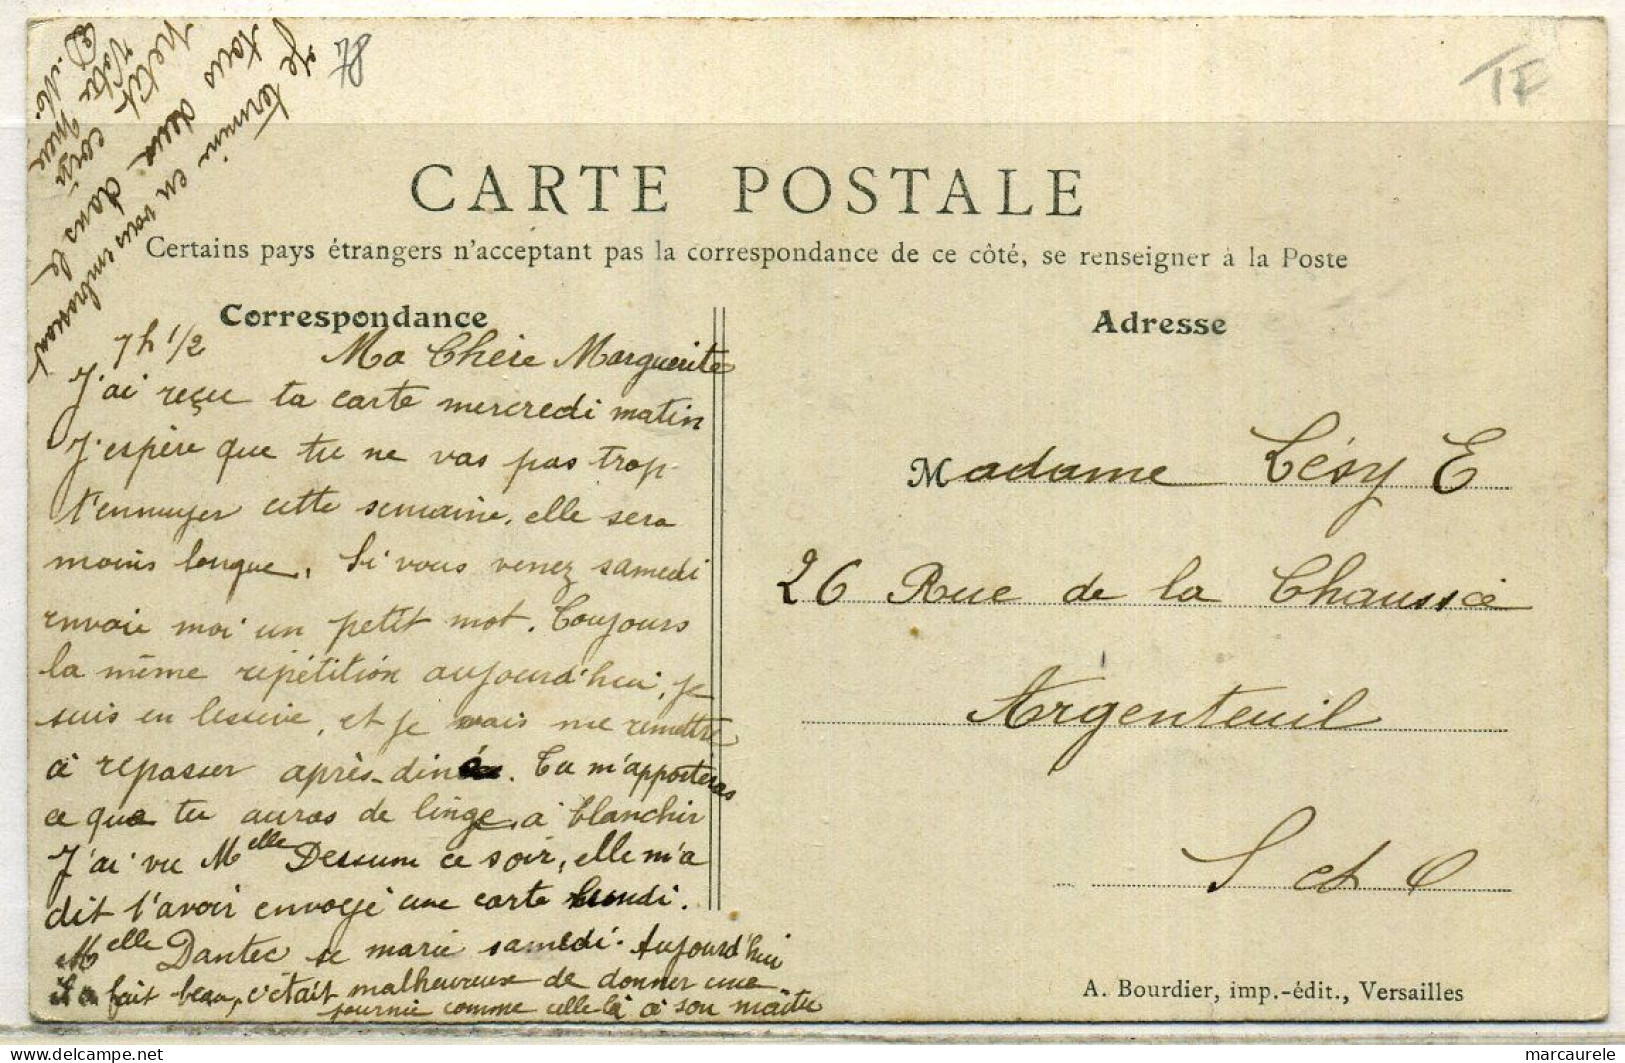 78
TF
CARTE POSTALE
Certains pays étrangers n'acceptant pas la correspondance de ce côté, se renseigner à la Poste
Correspondance
Adresse
7h 1/2 Ma Chère Marguerite
J'ai reçu ta carte mercredi matin
J'espère que tu ne vas pas trop
t'ennuyer cette semaine, elle sera
moins longue. Si vous venez samedi
envoie moi un petit mot. Toujours
la même répétition aujourd'hui, je
suis en lessive, et je vais me remettre
à repasser après-dîné. Tu m'apporteras
ce que tu auras de linge, à blanchir
J'ai vu Melle Dessum ce soir, elle m'a
dit t'avoir envoyé une carte lundi.
Melle Dantec se marie samedi. Aujourd'hui
il a fait beau, c'était malheureuse de donner une
journée comme celle là à son maitre
Je termine en vous embrassant
tous deux dans le
petit coin
Votre
D. M.
Madame Lésy E
26 Rue de la Chaussée
Argenteuil
S et O
A. Bourdier, imp.-édit., Versailles
delcampe.net
marcaurele